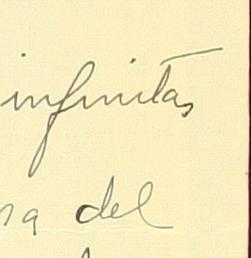 infinitas
na del